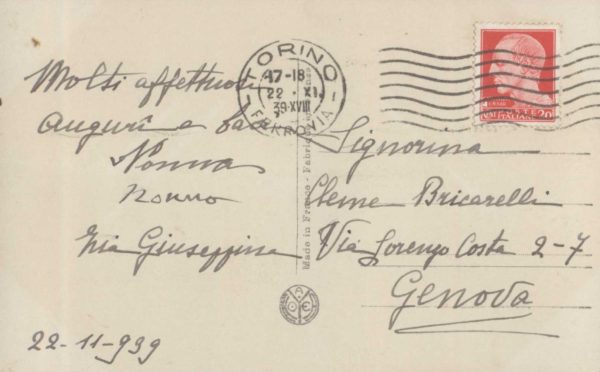 Molti affettuosi
auguri e baci
Nonna
nonno
Zia Giuseppina
22-11-939
TORINO
17-18
22 · XI
39·XVIII
FERROVIA
Made in France - Fabriqué
Signorina
Cleme Bricarelli
Via Lorenzo Costa 2-7
Genova